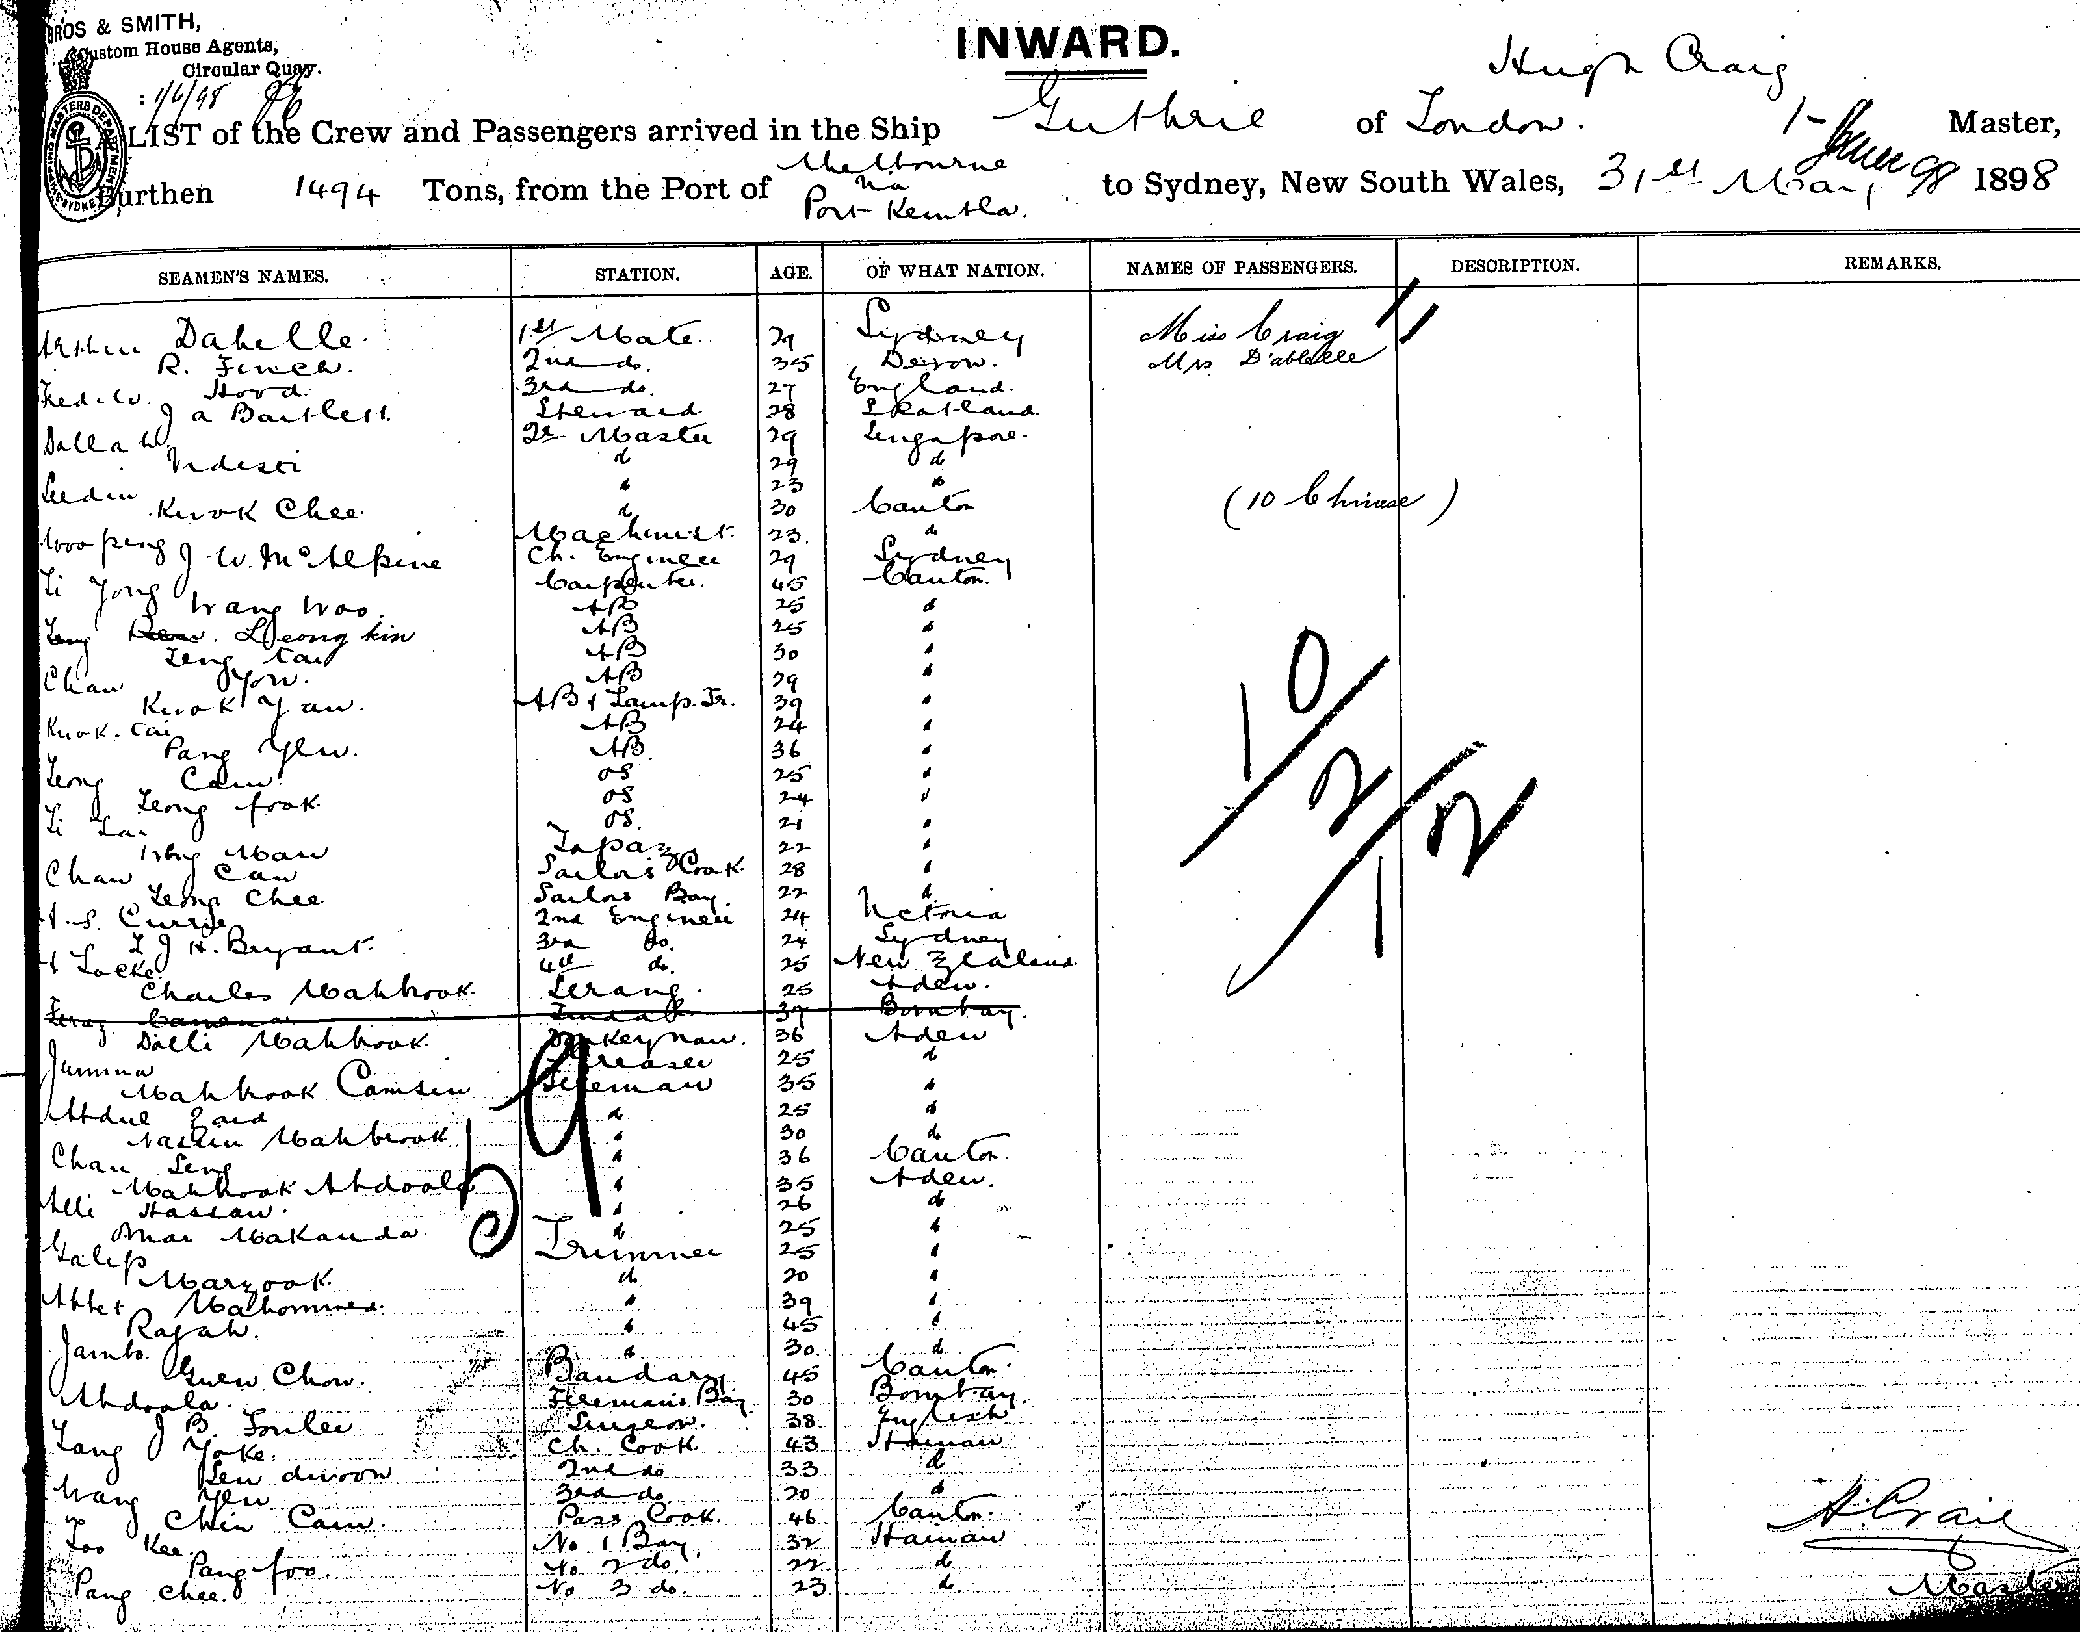 BROS & SMITH,
Custom House Agents,
Circular Quay.
1/6/98
INWARD.
Hugh Craig
LIST of the Crew and Passengers arrived in the Ship Guthrie of London. Master,
1- June 98
Burthen 1494 Tons, from the Port of Melbourne via Port Kembla. to Sydney, New South Wales, 31st May 1898
SEAMEN'S NAMES. STATION. AGE. OF WHAT NATION. NAMES OF PASSENGERS. DESCRIPTION. REMARKS.
Arthur Dabelle. 1st Mate 29 Sydney Miss Craig
R. Finch. 2nd do. 35 Devon. Mrs D'abbelle
Fred. W. Hood 3rd do. 27 England.
J a Bartlett. Steward 28 Skotland
Dalla 2r Master 29 Singapore.
29 "
Seedin " 23 "
Kwok Chee. " 30 Canton (10 Chinese)
Woo peng Machinist. 23. "
J W. McAlpine Ch. Engineer 29 Sydney
Li Yong Carpenter. 45 Canton.
Wang Woo. AB 25 "
Leong kin AB 25 "
Leng Cai AB 30 "
Chan Yow. AB 29 "
Kwok Yan. AB & Lamp. Tr. 39 "
Kwok. Cai AB 24 "
Pang Yew. AB. 36 "
Leong Cam. OS 25 "
Leong fook. OS 24 "
Li OS. 21 "
Man Topaz 22 "
Chan Can Sailors Cook 28 "
Leong Chee Sailors Boy. 22 "
A. S. Currie 2nd Engineer 24 Victoria
J H. Bryant. 3rd do. 24 Sydney
A Locke. 4th do. 25 New Zealand
Charles Mahbrook. Serang. 25 Aden.
Tindal 37 Bombay.
Dalli Mahbrook. Donkeyman. 36 Aden
Jumma Greaser 25 "
Mahbrook Camsen Fireman 35 "
Abdul Zaid " 25 "
Nassin Mahbrook " 30 "
Chan Seng " 36 Canton.
Mahbrook Abdoola " 35 Aden.
Alli Hassan. " 26 "
Omar Makanda " 25 "
Galep Trimmer 25 "
Marzook. " 20 "
Mahommed. " 39 "
Rajab. " 45 "
Jambo. " 30 "
Guen Chow. Bandary 45 Canton.
Abdoola. Firemans Boy 30 Bombay.
J B. Surgeon. 38 English
Yoke. Ch. Cook 43 Hainan
2nd do 33 "
Wang Yew 3rd do 20 "
Chin Cam. Pass Cook. 46 Canton.
Loo Kee. No 1 Boy. 32 Hainan
Pang foo. No 2 do. 22 "
Pang Chee. No 3 do. 23 "
10
2
12
59
H. Craig
Master